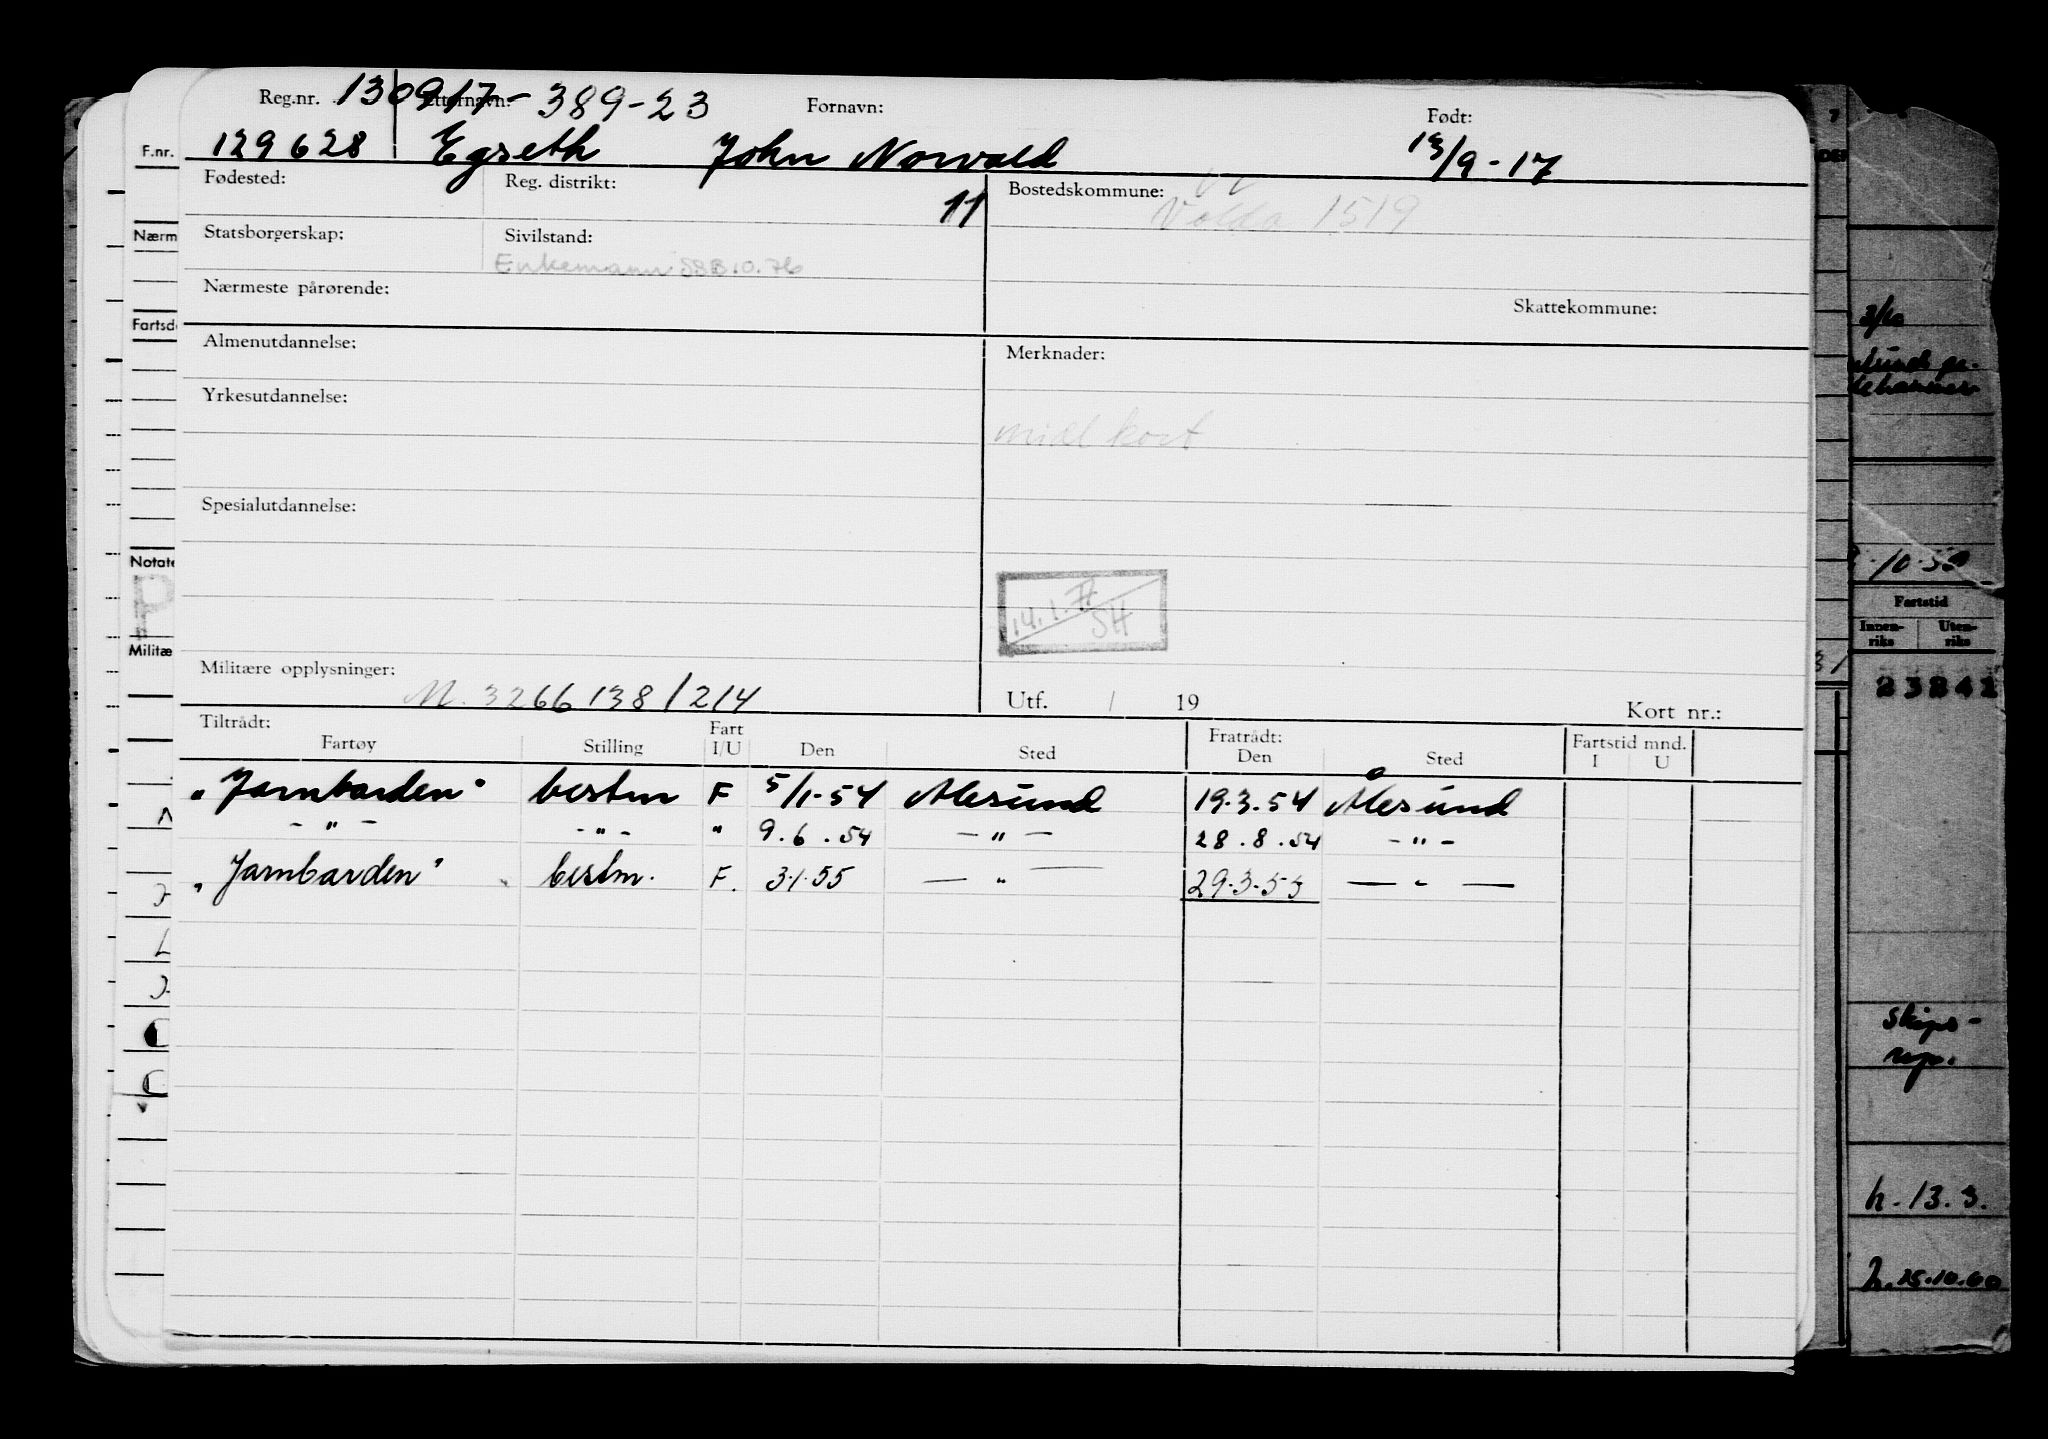 Reg.nr. 130917-389-23 Etternavn: Fornavn: Født:
129628 Egseth John Norvald 13/9-17
F.nr.
Fødested: Reg. distrikt: 11 Bostedskommune: Volda 1519
Statsborgerskap: Sivilstand:
Enkemann SSB.10.76
Nærmeste pårørende: Skattekommune:
Almenutdannelse: Merknader:
Yrkesutdannelse:
midl kort
Spesialutdannelse:
14.1.77
SH
Militære opplysninger: M. 3266138/214 Utf. / 19 Kort nr.:
Tiltrådt: Fratrådt: Fartstid mnd.
Fartøy Stilling Fart I/U Den Sted Den Sted I U
"Jarnbarden" bestm F 5/1-54 Ålesund 19.3.54 Ålesund
- " - - " - " 9.6.54 - " - 28.8.54 - " -
"Jarnbarden" bestm. F. 3.1.55 - " - 29.3.55 - " -
Nærm
Fartsd
Notate
P
Militæ
3/10
10.59
Fartstid
Innen-riks Uten-riks
31
23242
Skips-
rep.
h. 13.3.
h. 15.10.60